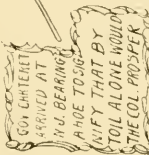 GOV. CARTERET
ARRIVED AT
N.J. BEARING
A HOE TO SIG-
NIFY THAT BY
TOIL ALONE WOULD
THE COL. PROSPER